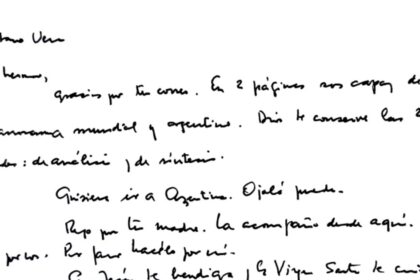 tavo Vera
hermano,
gracias por tu correo. En 2 páginas sos capaz de
anorama mundial y argentino. Dios te conserve las 2
des: de análisis y de síntesis.
Quisiera ir a Argentina. Ojalá pueda.
Rezo por tu madre. La acompaño desde aquí.
por vos. Por favor hacelo por mí.
Jesús te bendiga y la Virgen Santa te cui